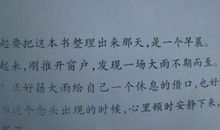 起要把这本书整理出来那天，是一个早晨。
起来，刚推开窗户，发现一场大雨不期而至。
正好藉大雨给自己一个休息的借口，也好
这个念头出现的时候，心里顿时安静下来，